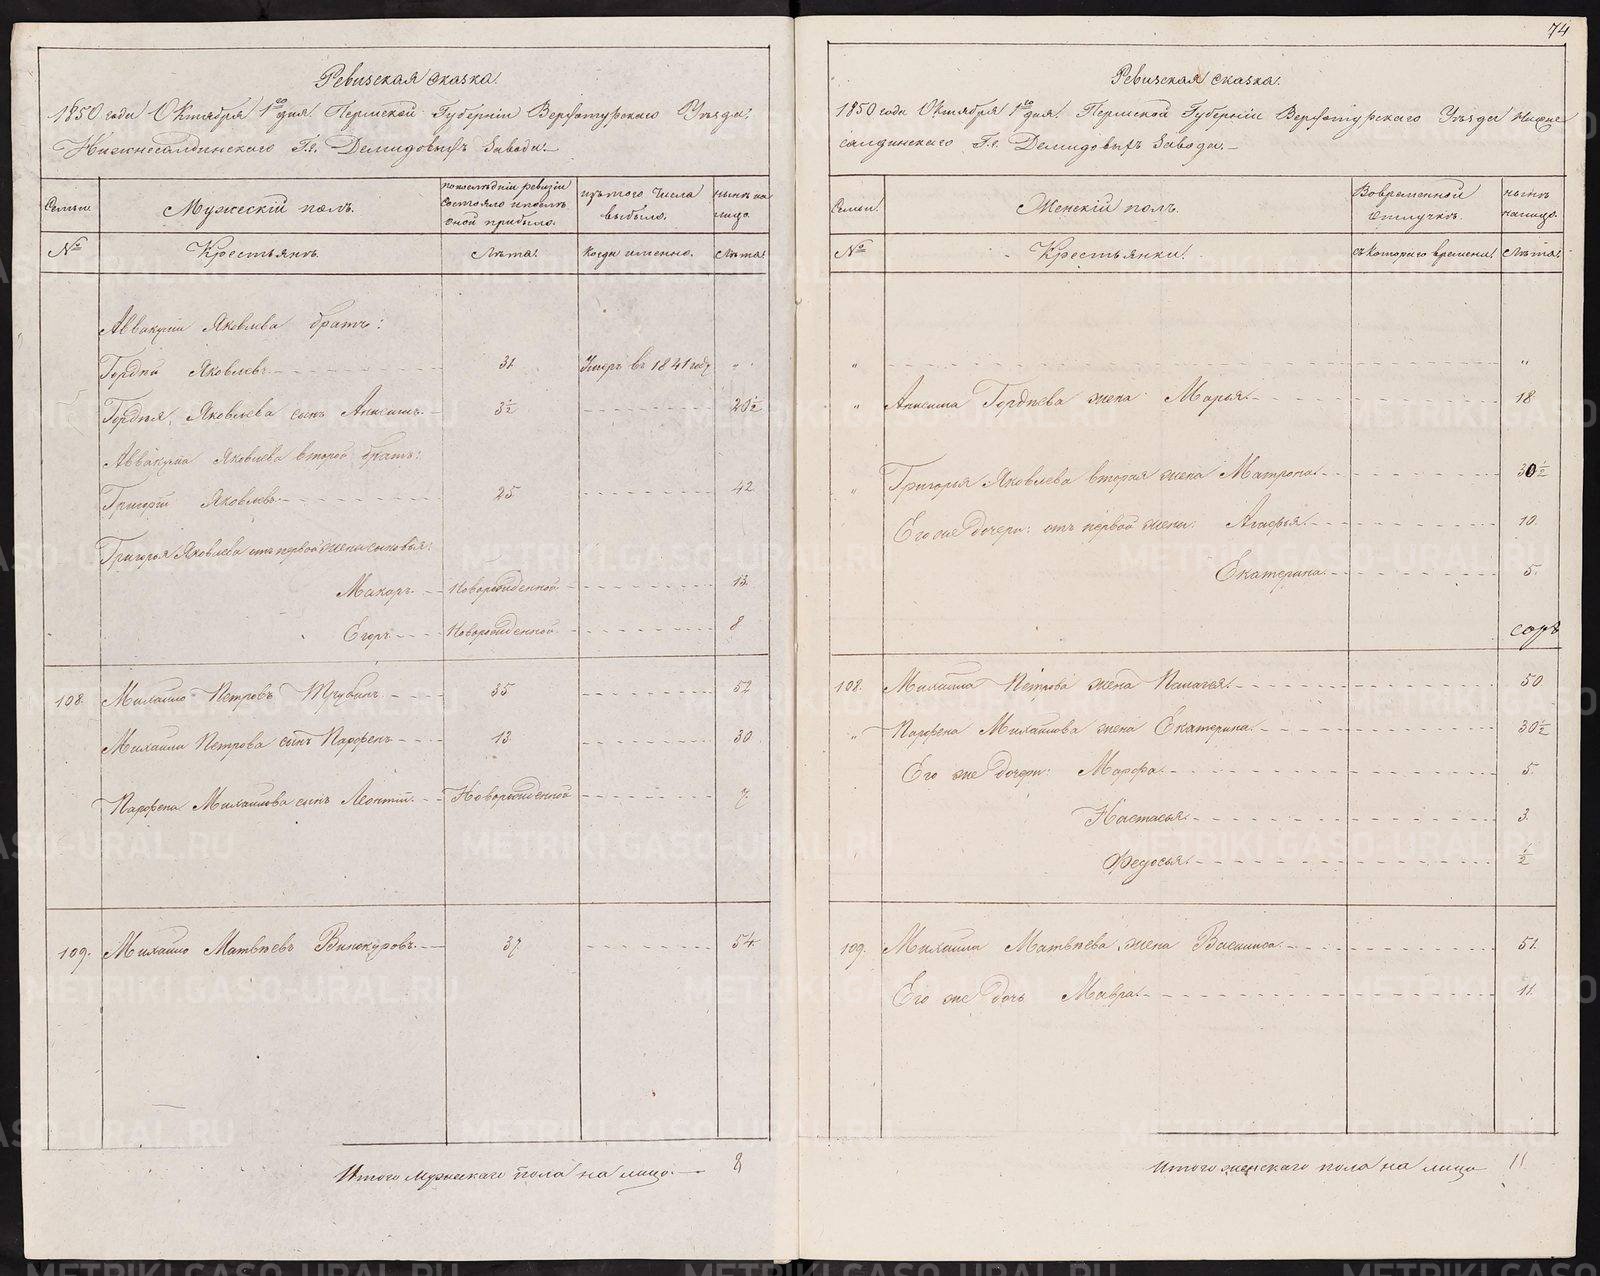 74
Ревизская сказка.
1850 года Октября 1го дня. Пермской Губерніи Верхотурскаго Уѣзда.
Нижнесалдинскаго Г.г. Демидовыхъ Завода.
Семьи.
Мужескій полъ.
по послѣдніи ревизіи состояло и послѣ оной прибыло.
изъ того числа выбыло.
нынѣ на лицо.
№
Крестьянѣ.
Лѣта.
Когда именно.
Лѣта.
Аввакума Яковлева братъ:
Гордѣй Яковлевъ 31. Умеръ въ 1841 году „
Гордѣя Яковлева сынъ Анисимъ. 3½ 20½
Аввакума Яковлева второй братъ:
Григорій Яковлевъ 25 42
Григорья Яковлева отъ первой жены сыновья:
Макоръ. Новорожденной 13.
Егоръ Новорожденной. 8
108. Михайло Петровъ Трубинъ. 35 52
Михаила Петрова сынъ Парфенъ 13 30
Парфена Михаилова сынъ Леонтій. Новорожденной 7.
109. Михайло Матвѣевъ Винокуровъ. 37 54.
Итого мужескаго пола на лицо. 8
Ревизская сказка.
1850 года Октября 1го дня. Пермской Губерніи Верхотурскаго Уѣзда Нижне
салдинскаго Г.г. Демидовыхъ Завода.
Семьи.
Женскій полъ.
Во временной отлучкѣ.
нынѣ налицо.
№
Крестьянки.
съ котораго времени.
Лѣта.
„ „
„ Анисима Гордѣева жена Марья. 18
„ Григорья Яковлева вторая жена Матрона. 30½
Его же дочери: отъ первой жены: Агафья. 10.
Екатерина. 5.
108. Михаила Петрова жена Палагея. 50
„ Парфена Михаилова жена Екатерина. 30½
Его же дочери: Марфа. 5.
Настасья. 3.
Федосья. ½
109. Михаила Матвѣева жена Васиниса. 51.
Его же дочь Мавра. 11.
Итого женскаго пола на лицо 11
METRIKI.GASO-URAL.RU